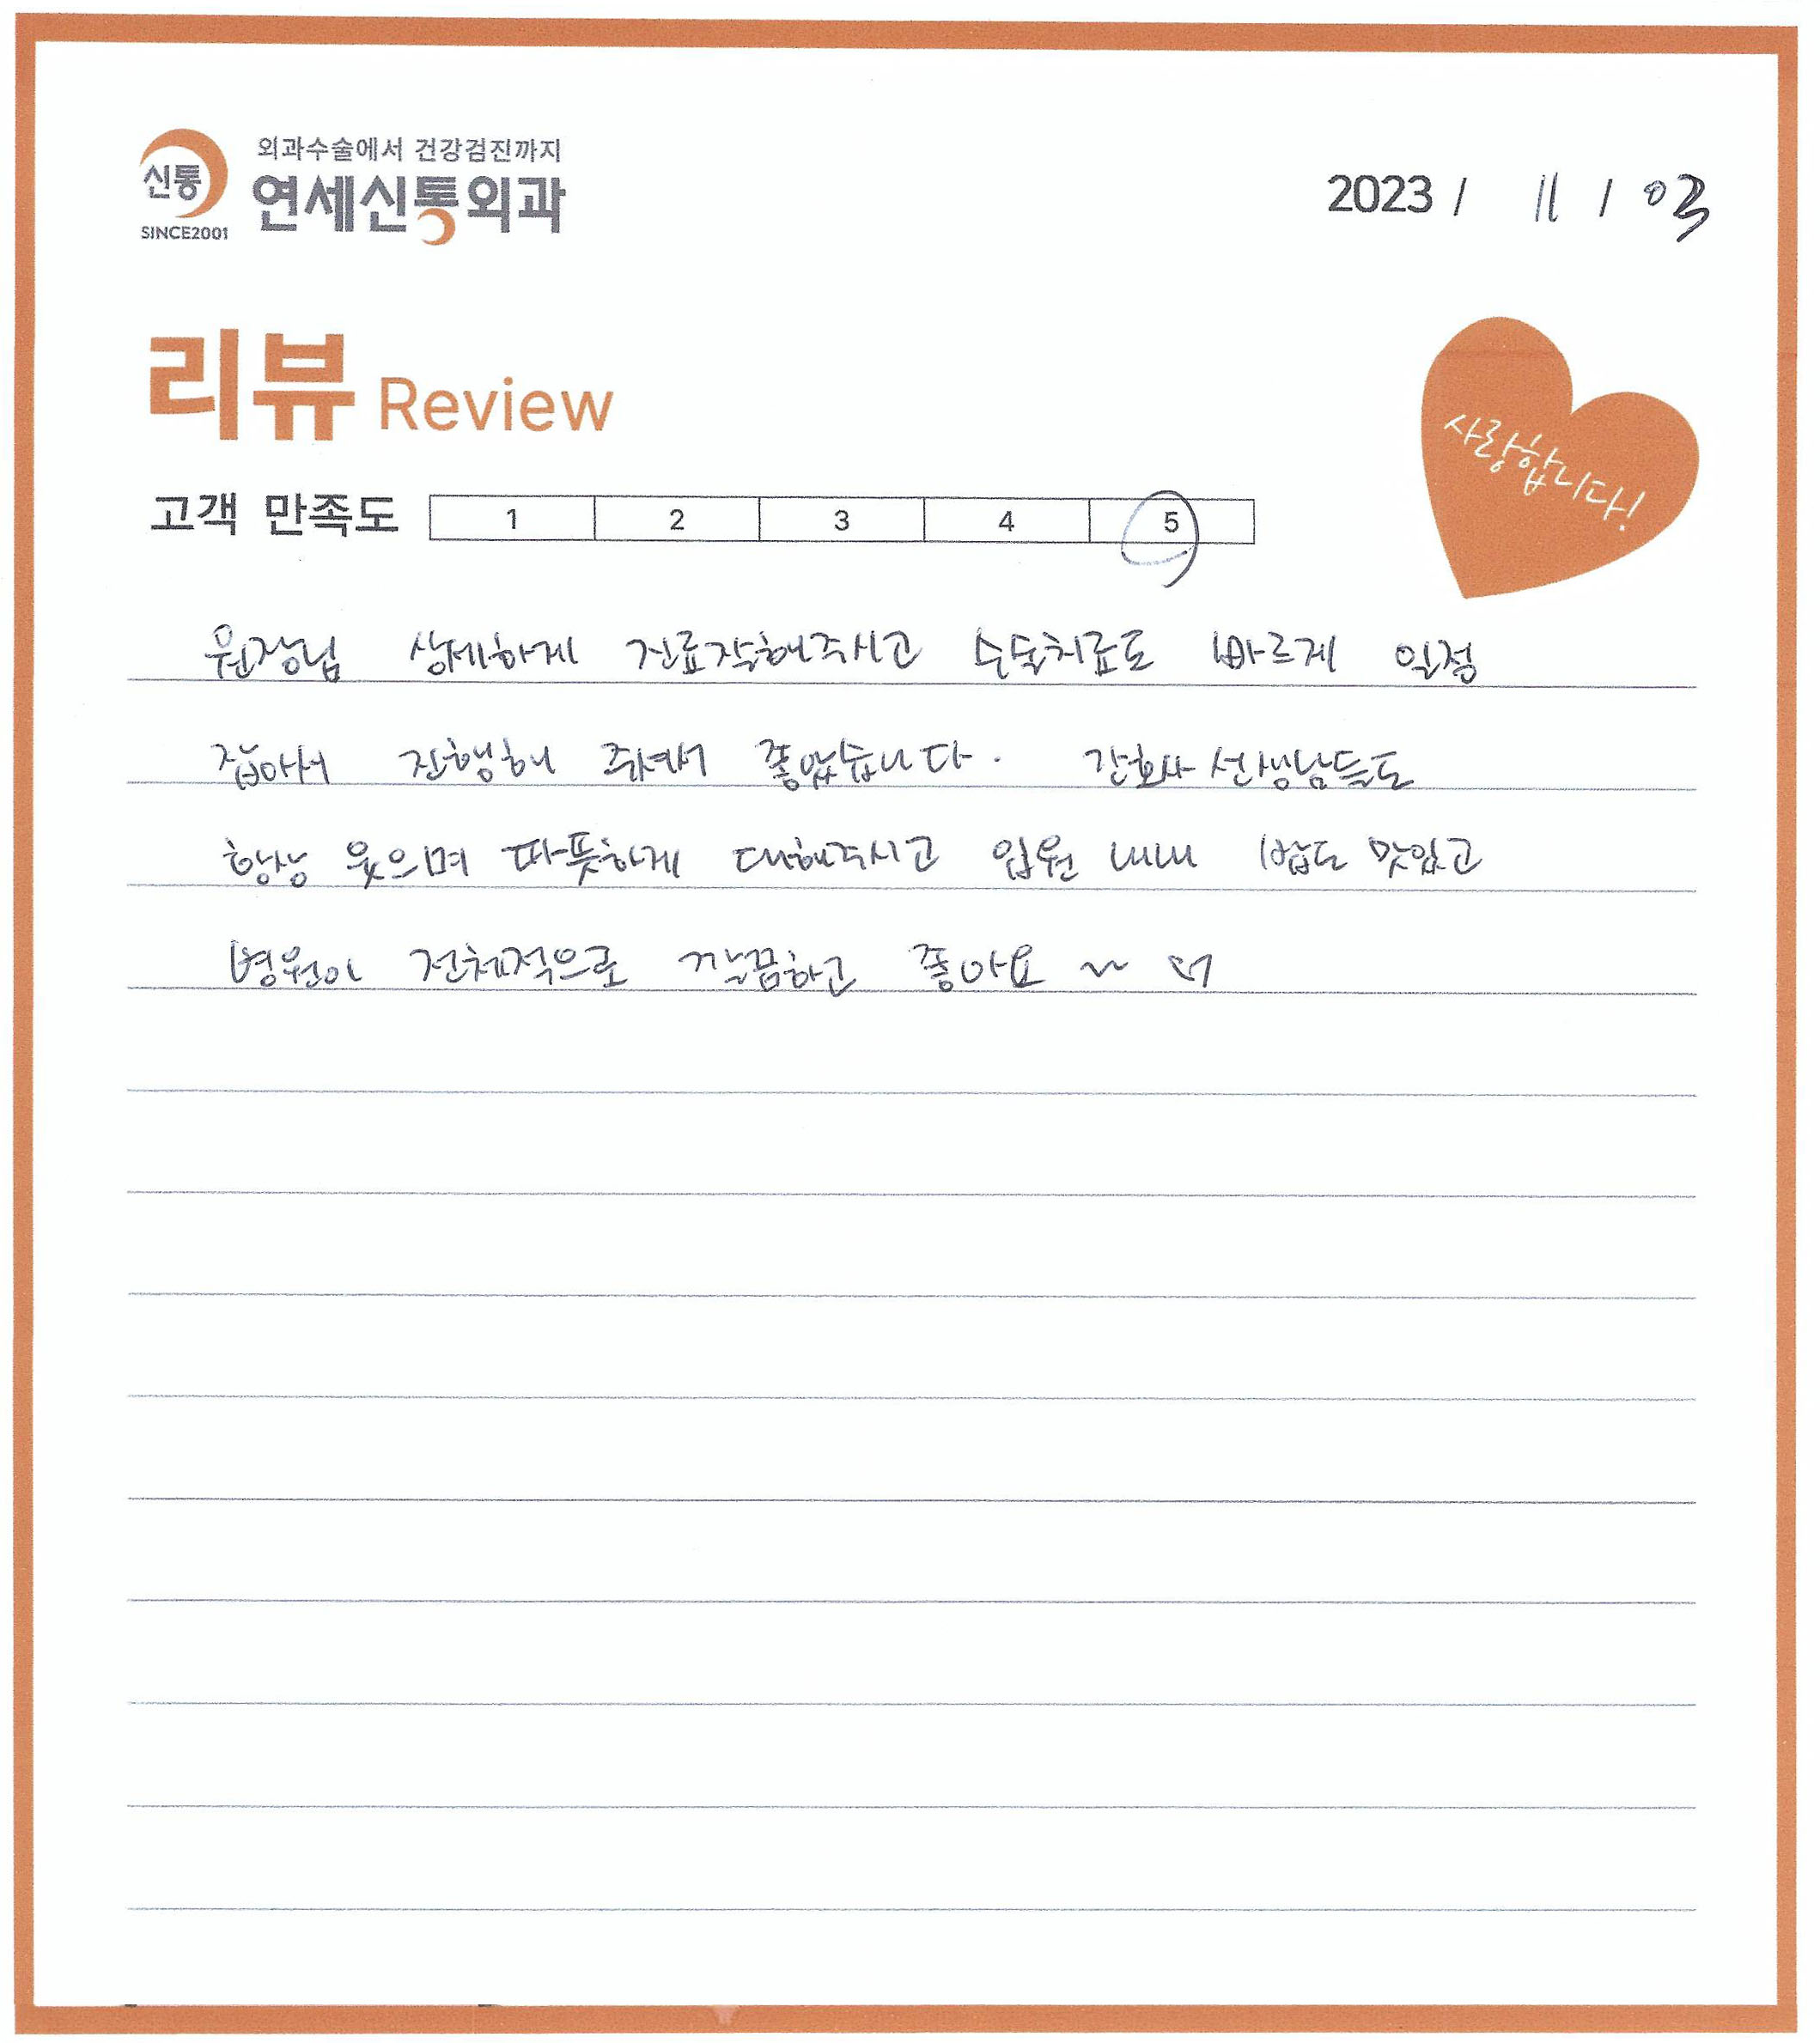 신통
SINCE2001
외과수술에서 건강검진까지
연세신통외과
2023 / 11 / 03
리뷰 Review
사랑합니다!
고객 만족도 1 2 3 4 5
원장님 상세하게 진료잘해주시고 수술치료도 빠르게 일정
잡아서 진행해 주셔서 좋았습니다. 간호사 선생님들도
항상 웃으며 따뜻하게 대해주시고 입원 내내 밥도 맛있고
병원이 전체적으로 깔끔하고 좋아요 ~